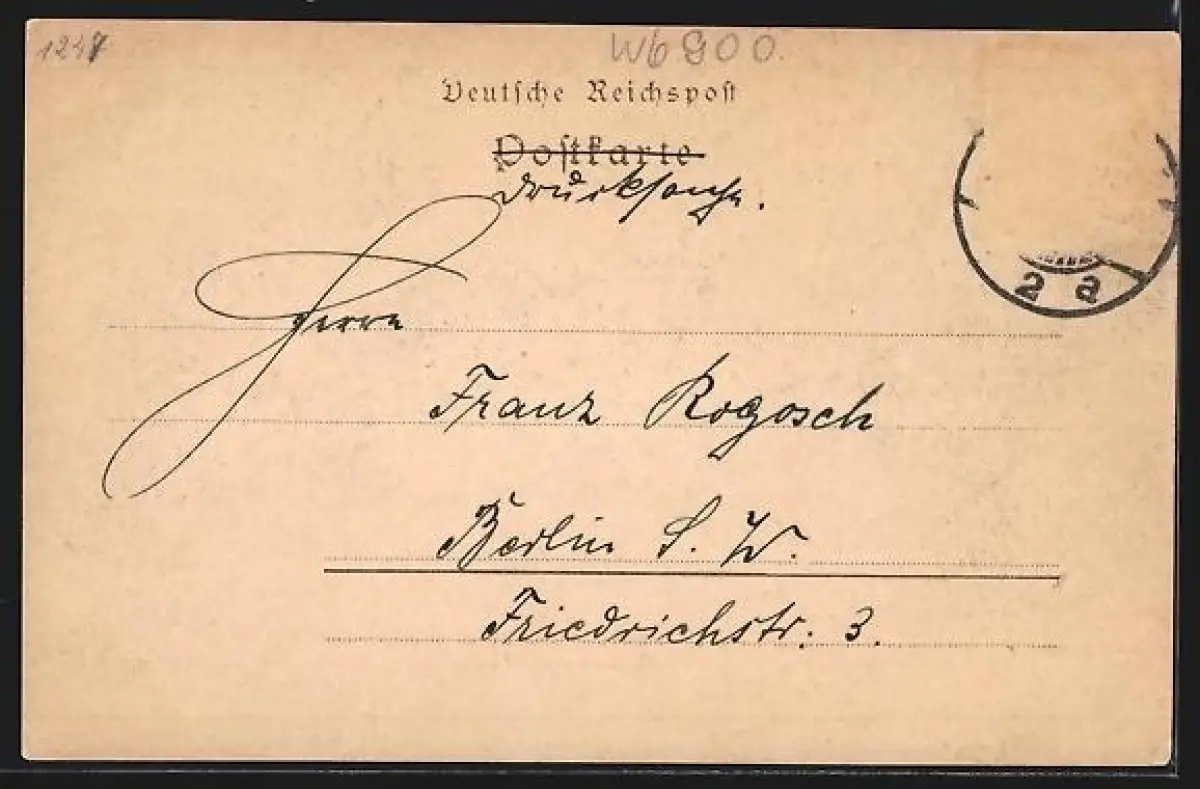 1247
W6900.
Deutsche Reichspost
Postkarte
Drucksache.
Herrn
Franz Rogosch
Berlin S. W.
Friedrichstr. 3.
2 a